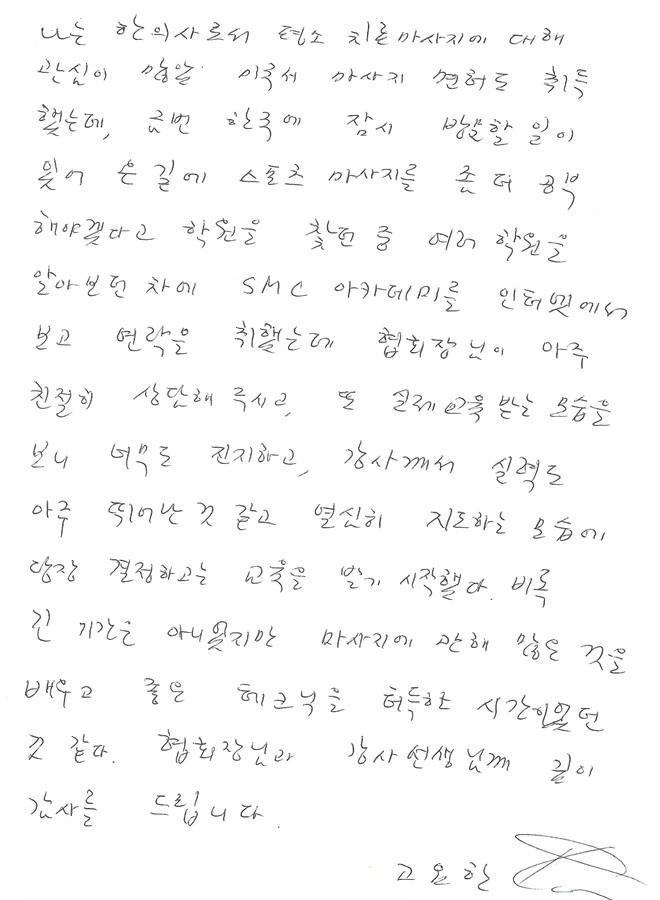 나는 한의사로써 평소 치료마사지에 대해
관심이 많았 미국서 마사지 면허도 취득
했는데, 금번 한국에 잠시 방문할 일이
있어 온 길에 스포츠 마사지를 좀 더 공부
해야겠다고 학원을 찾던 중 여러 학원을
알아보던 차에 SMC 아카데미를 인터넷에서
보고 연락을 취했는데 협회장님이 아주
친절히 상담해 주시고, 또 실제 교육 받는 모습을
보니 너무도 진지하고, 강사께서 실력도
아주 뛰어난 것 같고 열심히 지도하는 모습에
당장 결정하고는 교육을 받기 시작했다. 비록
긴 기간은 아니었지만 마사지에 관해 많은 것을
배우고 좋은 테크닉을 터득한 시간이었던
것 같다. 협회장님과 강사선생님께 깊이
감사를 드립니다.
고요한